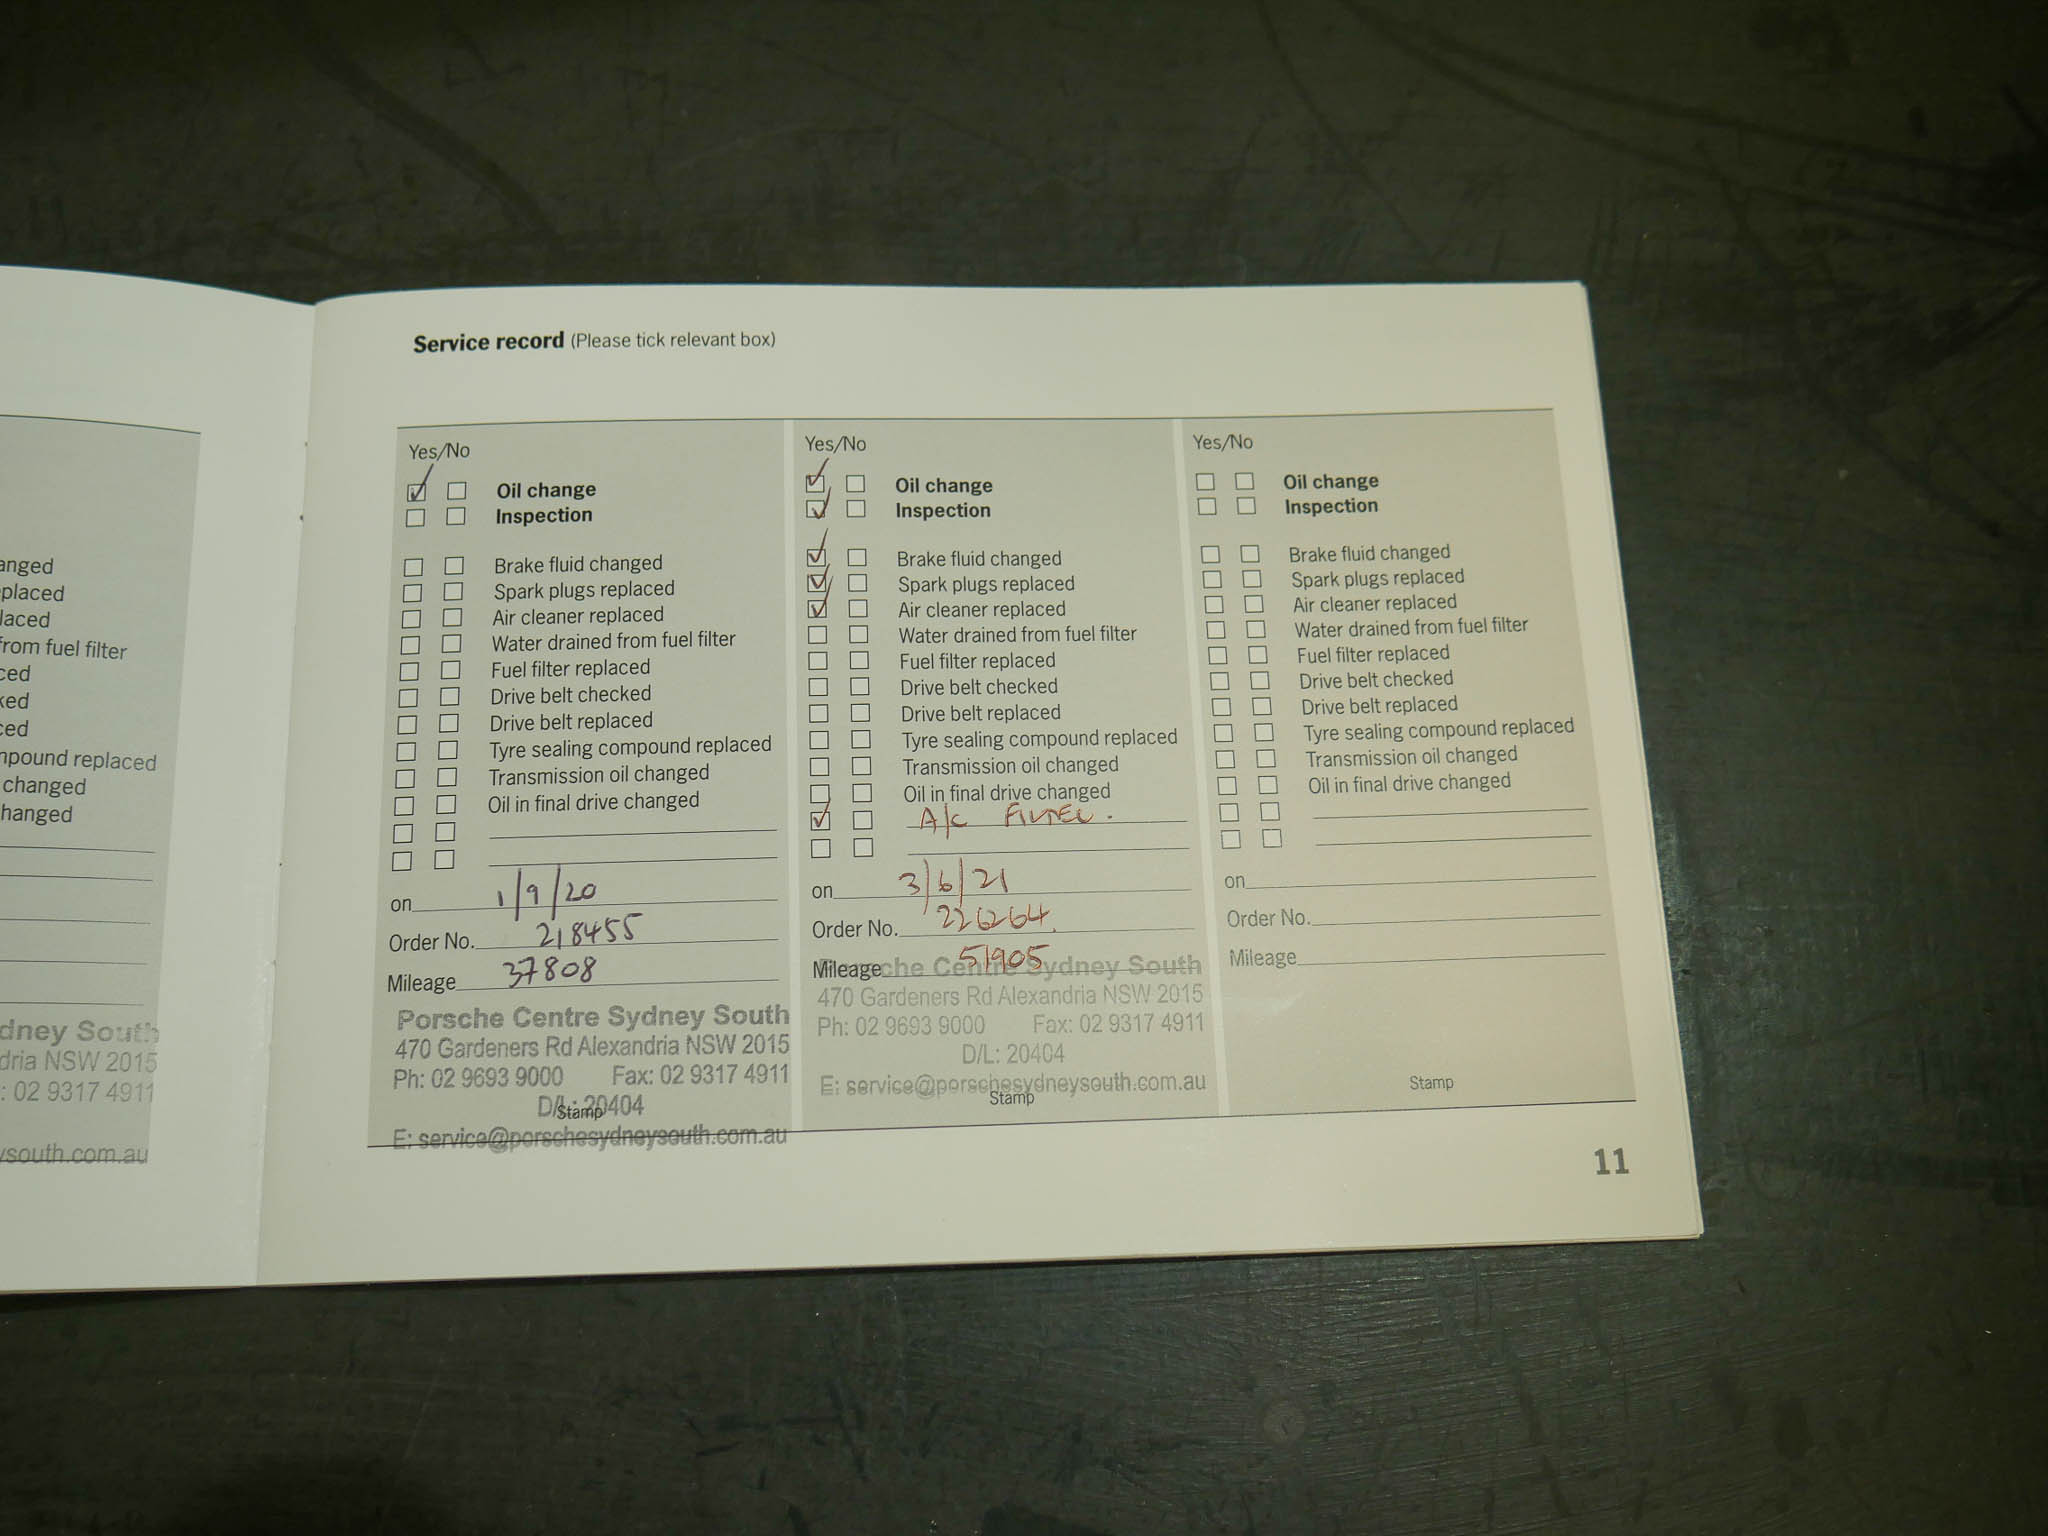 anged
placed
laced
from fuel filter
ced
ked
ced
mpound replaced
changed
hanged
dney South
dria NSW 2015
: 02 9317 4911
ysouth.com.au
Service record (Please tick relevant box)
Yes/No
Oil change
Inspection
Brake fluid changed
Spark plugs replaced
Air cleaner replaced
Water drained from fuel filter
Fuel filter replaced
Drive belt checked
Drive belt replaced
Tyre sealing compound replaced
Transmission oil changed
Oil in final drive changed
on 1/9/20
Order No. 218455
Mileage 37808
Porsche Centre Sydney South
470 Gardeners Rd Alexandria NSW 2015
Ph: 02 9693 9000 Fax: 02 9317 4911
D/L: 20404
Stamp
E: service@porschesydneysouth.com.au
Yes/No
Oil change
Inspection
Brake fluid changed
Spark plugs replaced
Air cleaner replaced
Water drained from fuel filter
Fuel filter replaced
Drive belt checked
Drive belt replaced
Tyre sealing compound replaced
Transmission oil changed
Oil in final drive changed
A/C FILTER.
on 3/6/21
Order No. 226264.
Mileage 51905
Porsche Centre Sydney South
470 Gardeners Rd Alexandria NSW 2015
Ph: 02 9693 9000 Fax: 02 9317 4911
D/L: 20404
E: service@porschesydneysouth.com.au
Stamp
Yes/No
Oil change
Inspection
Brake fluid changed
Spark plugs replaced
Air cleaner replaced
Water drained from fuel filter
Fuel filter replaced
Drive belt checked
Drive belt replaced
Tyre sealing compound replaced
Transmission oil changed
Oil in final drive changed
on
Order No.
Mileage
Stamp
11